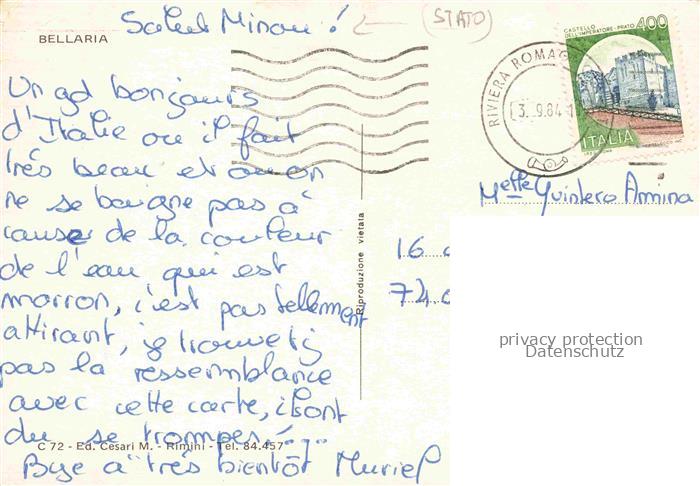 Salut Minou ! (STATO)
BELLARIA
Un gd bonjours
d'Italie ou il fait
très beau et ou on
ne se baigne pas à
cause de la couleur
de l'eau qui est
marron, c'est pas tellement
attirant, je trouve
pas la ressemblance
avec cette carte, ils ont
du se tromper !...
Bye à très bientôt Muriel
C 72 - Ed. Cesari M. - Rimini - Tel. 84.457
Riproduzione vietata
RIVIERA ROMAG
3. 9.84
CASTELLO
DELL'IMPERATORE - PRATO 400
ITALIA
Melle Quintero Amina
16
74
privacy protection
Datenschutz